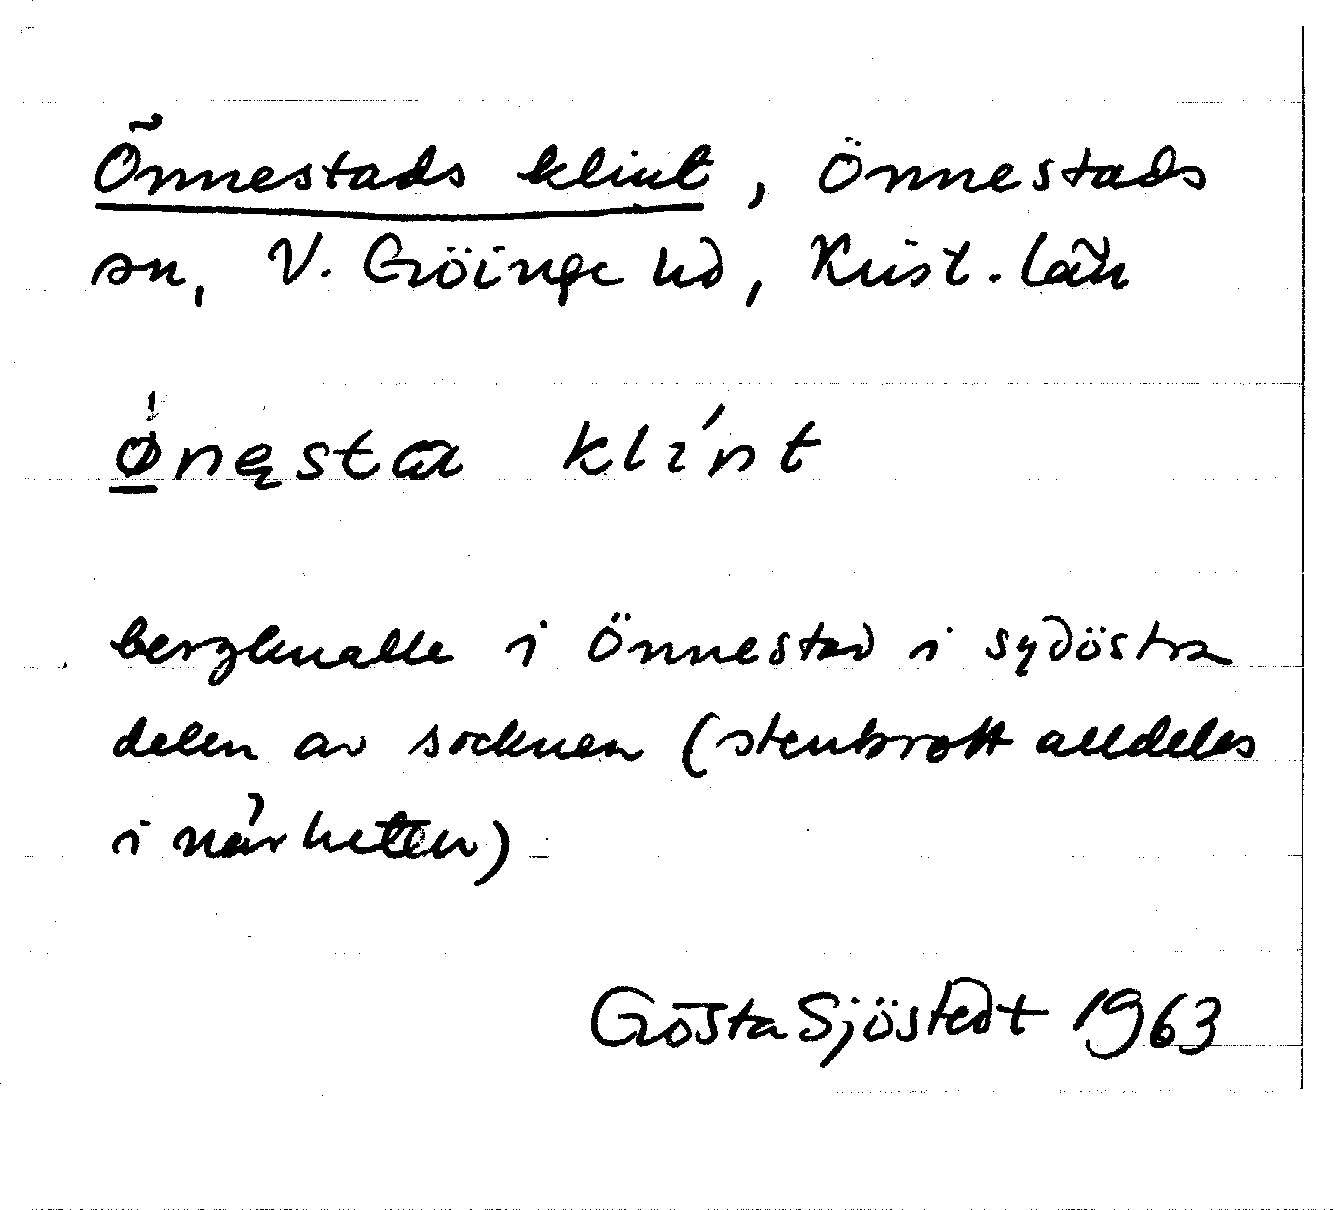 Önnestads klint, Önnestads
sn, V. Göinge hd, Krist. län
ø̲nęsta klint
bergknalle i Önnestad i sydöstra
delen av socknen (stenbrott alldeles
i närheten)
Gösta Sjöstedt 1963